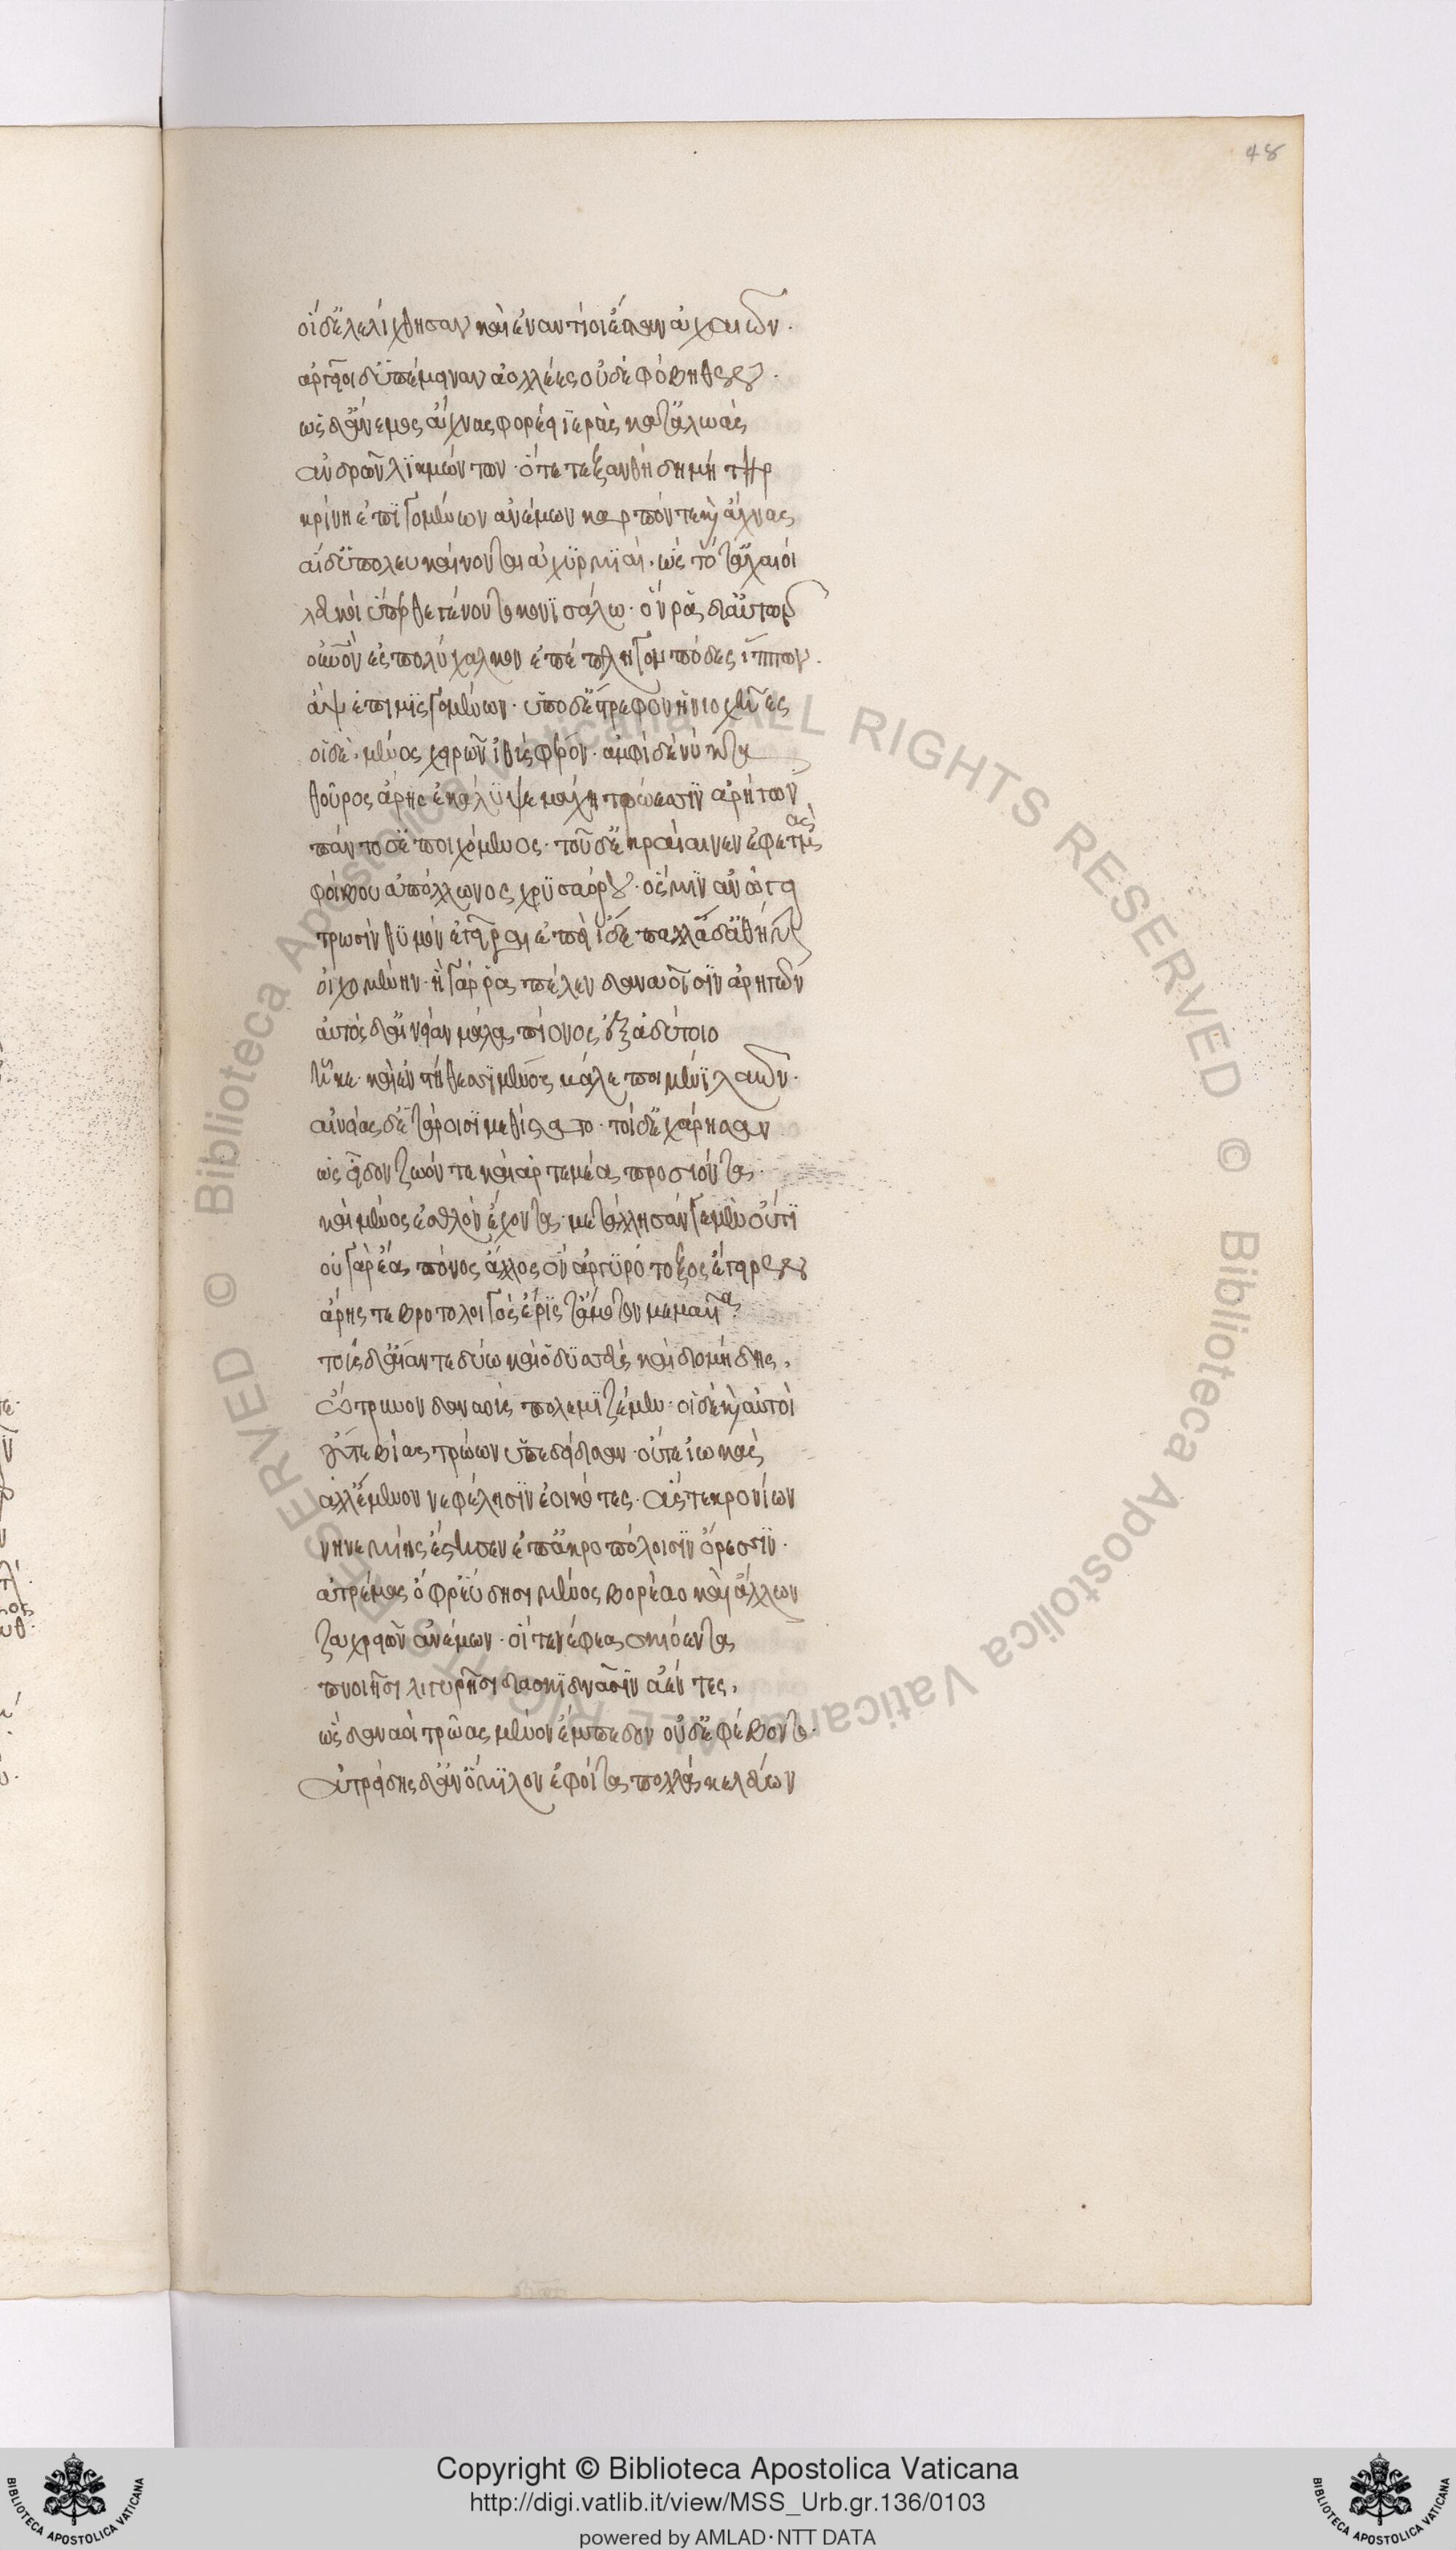 48
οἱ δ' ἐλελίχθησαν καὶ ἐναντίοι ἔσταν ἀχαιῶν·
ἀργεῖοι δ' ὑπέμειναν ἀολλέες οὐδὲ φόβηθεν·
ὡς δ' ἄνεμος ἄχνας φορέει ἱερὰς κατ' ἀλωὰς
ἀνδρῶν λικμώντων· ὅτε τε ξανθὴ δημήτηρ
κρίνη ἐπειγομένων ἀνέμων καρπόν τε καὶ ἄχνας
αἱ δ' ὑπολευκαίνονται ἀχυρμιαί· ὡς τότ' ἀχαιοὶ
λευκοὶ ὕπερθε γένοντο κονισάλω· ὅν ρα δι' αὐτῶν
οὐρανὸν ἐς πολύχαλκον ἐπέπληγον πόδες ἵππων·
ἂψ ἐπιμισγομένων· ὑπὸ δ' ἔστρεφον ἡνιοχῆες
οἱ δὲ μένος χειρῶν ἰθὺς φέρον· ἀμφὶ δὲ νύκτα
θοῦρος ἄρης ἐκάλυψε μάχη τρώεσσιν ἀρήγων
πάντοσ' ἐποιχόμενος· τοῦ δ' ἐκραίαινεν ἐφετμάς
φοίβου ἀπόλλωνος χρυσαόρου· ὅς μιν ἀνώγει
τρωσὶν θυμὸν ἐγεῖραι ἐπεὶ ἴδε παλλάδ' ἀθήνην
οἰχομένην· ἡ γάρ ρα πέλεν δαναοῖσιν ἀρηγών
αὐτὸς δ' αἰνείαν μάλα πίονος ἐξ ἀδύτοιο
ἧκε· καὶ ἐν στήθεσσι μένος βάλε ποιμένι λαῶν·
αἰνείας δ' ἑτάροισι μεθίστατο· τοὶ δ' ἐχάρησαν
ὡς εἶδον ζωόν τε καὶ ἀρτεμέα προσιόντα·
καὶ μένος ἐσθλὸν ἔχοντα· μετάλλησάν γε μὲν οὔτι
οὐ γὰρ ἔα πόνος ἄλλος ὃν ἀργυρότοξος ἔγειρεν
ἄρης τε βροτολοιγὸς ἔρις τ' ἄμοτον μεμαυῖα·
τοὺς δ' αἴαντε δύω καὶ ὀδυσσεὺς καὶ διομήδης,
ὤτρυνον δαναοὺς πολεμιζέμεν· οἱ δὲ καὶ αὐτοὶ
οὔτε βίας τρώων ὑπεδείδισαν· οὔτε ἰωκὰς
ἀλλ' ἔμενον νεφέλησιν ἐοικότες· ἅς τε κρονίων
νηνεμίης ἔστησεν ἐπ' ἀκροπόλοισιν ὄρεσσιν·
ἀτρέμας ὄφρ' εὕδησι μένος βορέαο καὶ ἄλλων
ζαχρειῶν ἀνέμων· οἵ τε νέφεα σκιόεντα
πνοιῆσι λιγυρῆσι διασκιδνᾶσιν ἀέντες,
ὡς δαναοὶ τρῶας μένον ἔμπεδον οὐδ' ἐφέβοντο·
ἀτρείδης δ' ἀν' ὅμιλον ἐφοίτα πολλὰ κελεύων
Copyright © Biblioteca Apostolica Vaticana
http://digi.vatlib.it/view/MSS_Urb.gr.136/0103
powered by AMLAD·NTT DATA